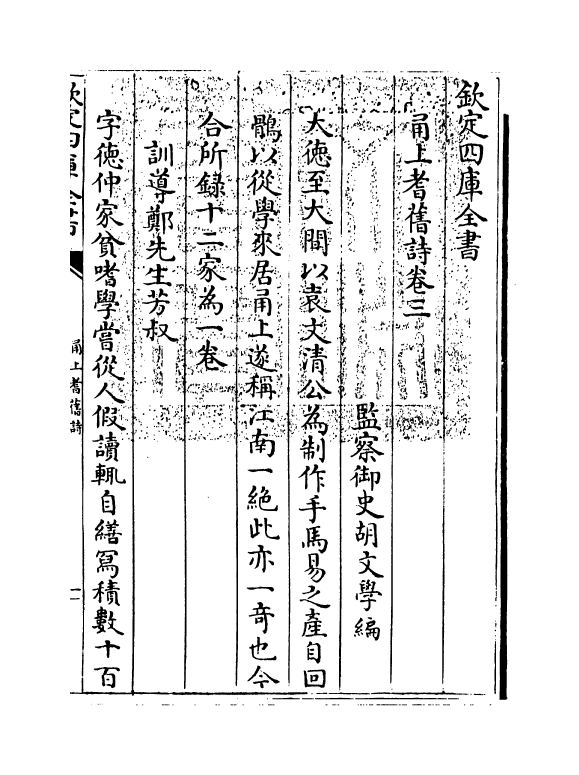 欽定四庫全書
甬上耆舊詩卷三
監察御史胡文學編
大德至大間以袁文清公為制作手馬易之產自回
鶻以從學來居甬上遂稱江南一絶此亦一竒也今
合所録十二家為一卷
訓導鄭先生芳叔
字德仲家貧嗜學嘗從人假讀輒自繕冩積數十百
欽定四庫全書
甬上耆舊詩
一